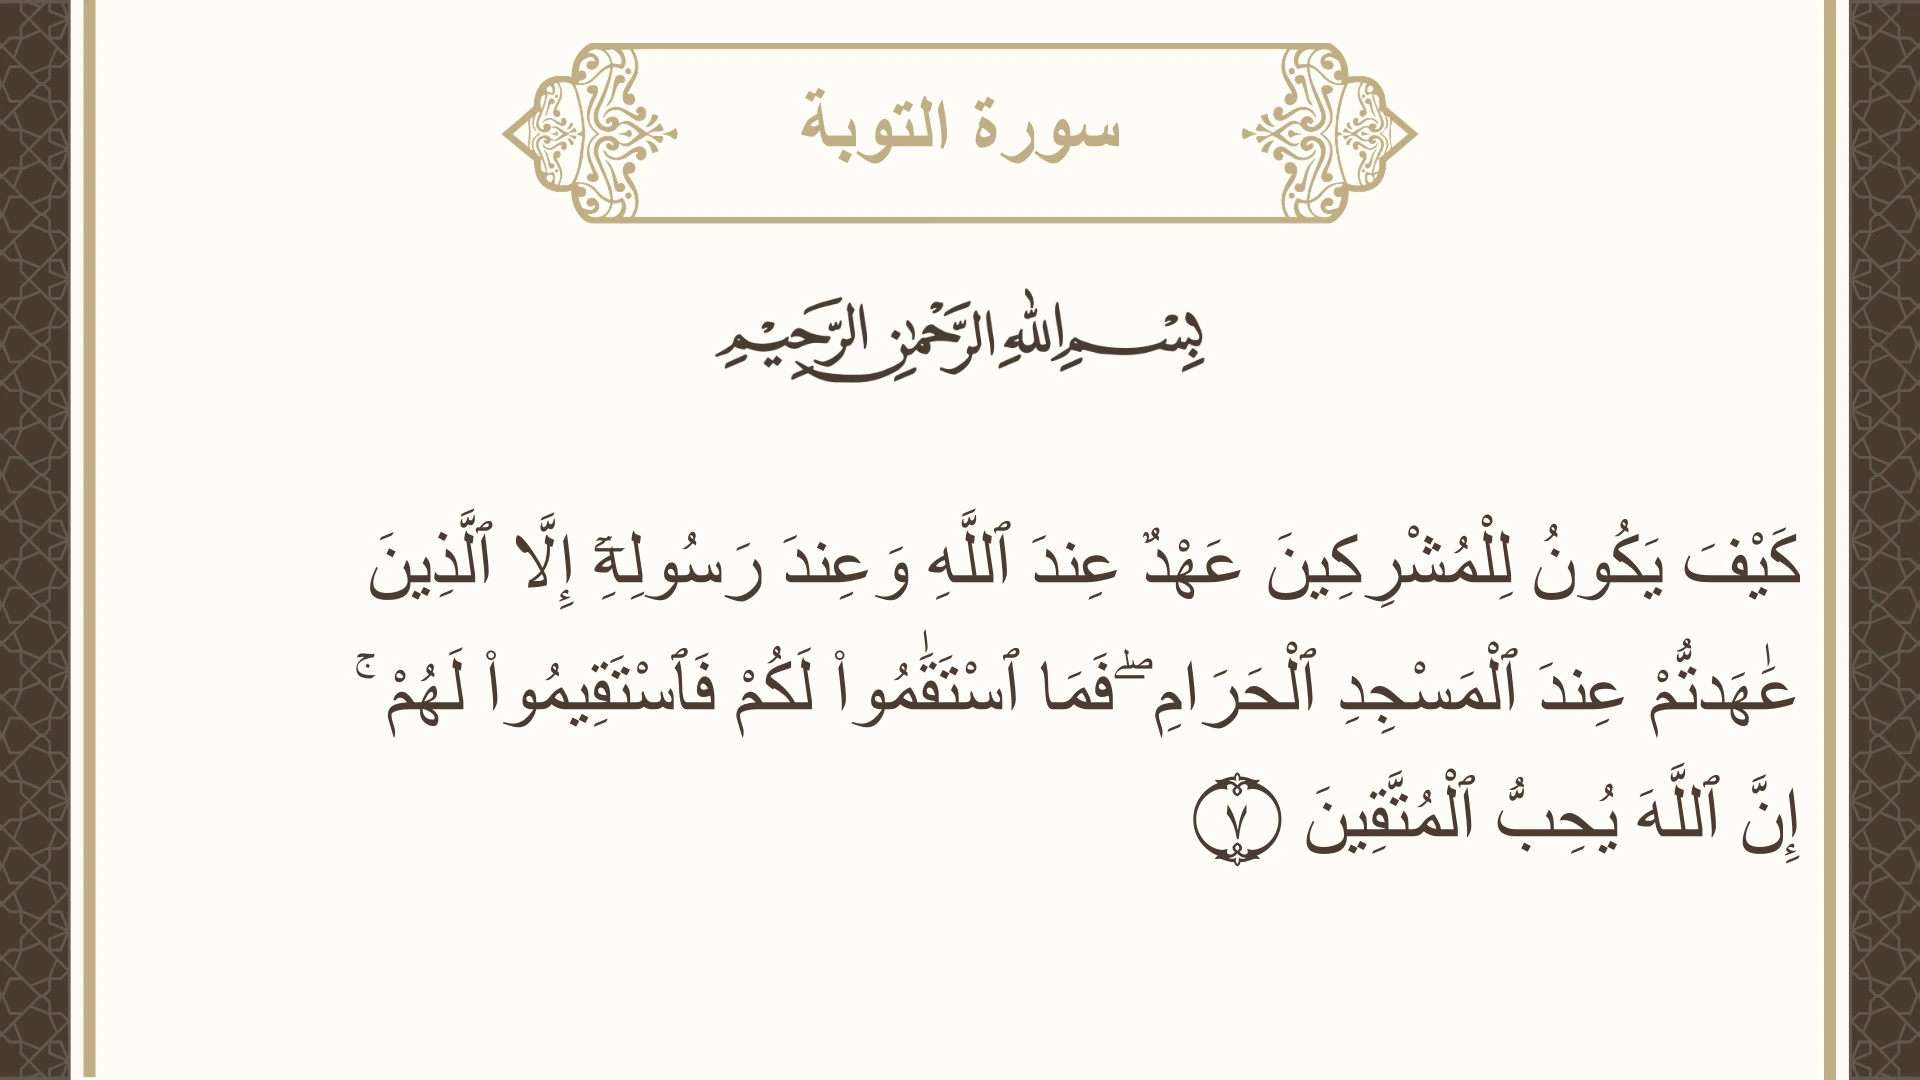 سورة التوبة
بِسْمِ اللهِ الرَّحْمٰنِ الرَّحِيْمِ
كَيْفَ يَكُونُ لِلْمُشْرِكِينَ عَهْدٌ عِندَ ٱللَّهِ وَعِندَ رَسُولِهِۦٓ إِلَّا ٱلَّذِينَ
عَٰهَدتُّمْ عِندَ ٱلْمَسْجِدِ ٱلْحَرَامِ ۖ فَمَا ٱسْتَقَٰمُوا۟ لَكُمْ فَٱسْتَقِيمُوا۟ لَهُمْ ۚ
إِنَّ ٱللَّهَ يُحِبُّ ٱلْمُتَّقِينَ ٧